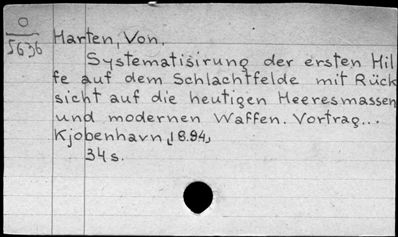 O
5636
Harten, Von.
Systematisirung der ersten Hil
fe auf dem Schlachtfelde mit Rück
sicht auf die heutigen Heeresmassen
und modernen Waffen. Vortrag...
Kjobenhavn, 18.84,
34 s.